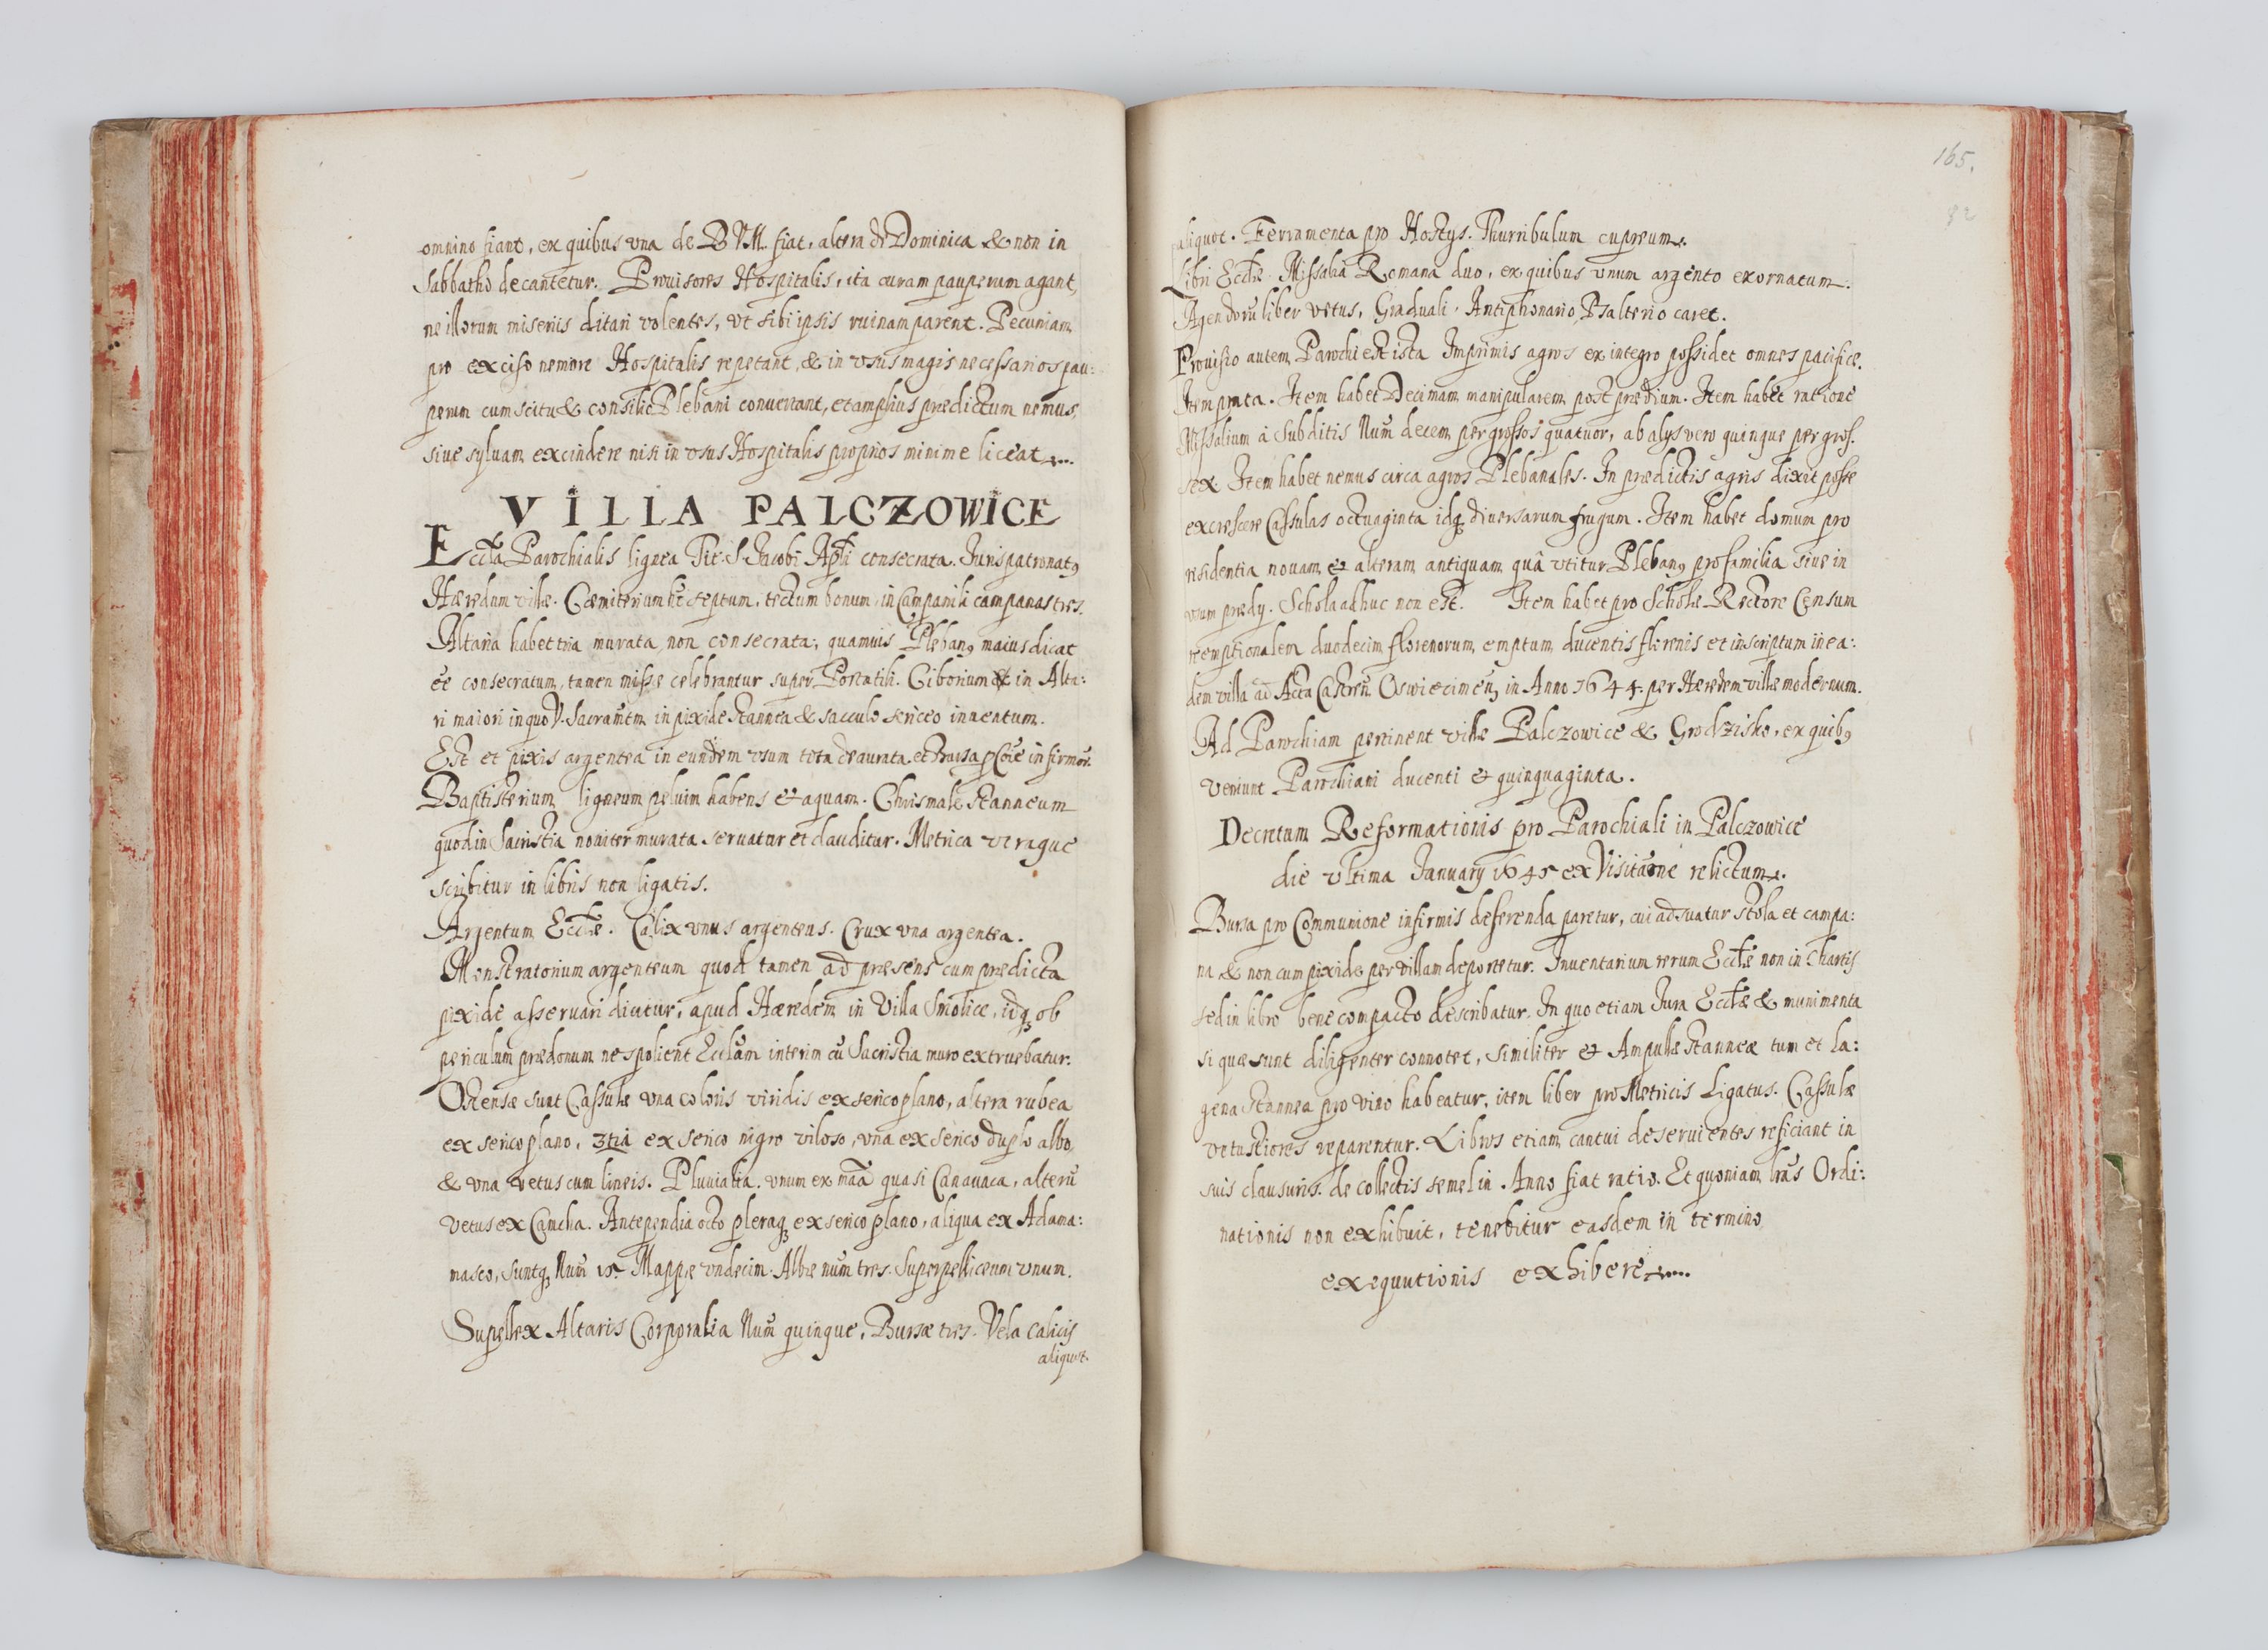 omnino fiant, ex quibus vna de B V M. fiat, altera de Dominica & non in
Sabbatho decantetur. Prouisores Hospitalis, ita curam pauperum agant,
ne illorum miserijs ditari volentes, vt sibi ipsis ruinam parent. Pecuniam
pro exciso nemore Hospitalis repetant, & in vsus magis necessarios pau:
perum cum scitu & consilio Plebani conuertant, et amplius prædictum nemus,
siue syluam excindere nisi in vsus Hospitalis proprios minime liceat
VILLA PALCZOWICE
Eccła Parochialis lignea Tit: S. Jacobi Apłi consecrata. Juris patronatꝯ
Hæredum villæ. Cæmiterium septum, tectum bonum, in Campanili campanas tres.
Altaria habet tria murata non consecrata, quamuis Plebanꝯ maius dicat
ēē consecratum, tamen missæ celebrantur super Portatili. Ciborium in Alta:
ri maiori in quo V. Sacramtm in pixide stannea & sacculo sericeo inuentum.
Est et pixis argentea in eundem vsum tota deaurata et Bursa p Cōie infirmor.
Baptisterium ligneum peluim habens & aquam. Chrismale stanneum
quod in Sacristia nouiter murata seruatur et clauditur. Metrica vtraque
scribitur in libris non ligatis.
Argentum Ecclæ. Calix vnus argenteus. Crux vna argentea.
Monstratorium argenteum quod tamen ad præsens cum prædicta
pixide asseruari dicitur, apud Hæredem in Villa Smolice, idqꝫ ob
periculum prædonum ne spolient Ecclam interim cū Sacristia muro extruebatur.
Ornens̄ sunt Casulæ vna coloris viridis ex serico plano, altera rubea
ex serico plano, 3tia ex serico nigro viloso, vna ex serico duplo albo,
& vna vetus cum lineis. Pluuialia. vnum ex māa quasi Canauaca, alterū
vetus ex Camcha. Antependia octo pleraqꝫ ex serico plano, aliqua ex Adama:
masco, suntqꝫ Num 15. Mappæ vndecim. Albæ num tres. Superpelliceum vnum.
Supellex Altaris Corporalia Num quinque, Bursæ tres. Vela Calicis
aliquot.
165.
82
aliquot. Ferramenta pro Hostijs. Thurribulum cupreum.
Libri Ecclæ. Missalia Romana duo, ex quibus vnum argento exornatum.
Agendorū liber vetus, Graduali, Antiphonario, Psalterio caret.
Prouisio autem Parochi est ista Imprimis agros ex integro possidet omnes pacifice.
Item prata. Item habet Decimam manipularem post prædium. Item habet ratione
Missalium à Subditis Num decem per grossos quatuor, ab alijs vero quinque per gross.
sex Item habet nemus circa agros Plebanales. In prædictis agris dixit posse
excrescere Cassulas octuaginta idqꝫ diuersarum frugum. Item habet domum pro
residentia nouam & alteram antiquam quâ vtitur Plebanꝯ pro familia siue in
vsum prædij. Schola adhuc non est. Item habet pro Scholæ Rectore Censum
reemptionalem duodecim florenorum emptum ducentis florenis et inscriptum in ea:
dem villa ad Acta Castreñ Oswiecimeñ, in Anno 1644. per Hæredem villæ modernum.
Ad Parochiam pertinent villæ Palczowice & Grodzisko, ex quibꝯ
veniunt Parochiani ducenti & quinquaginta.
Decretum Reformationis pro Parochiali in Palczowice
die vltima Januarij 1645 ex Visitāōne relictum.
Bursa pro Communione infirmis deferenda paretur, cui adsuatur stola et campa:
na & non cum pixide per villam deportetur. Inuentarium rerum Ecclæ non in Chartis
sed in libro bene compacto describatur. In quo etiam Jura Ecclæ & munimenta
si quæ sunt diligenter connotet, similiter & Ampullæ stanneæ tum et La:
gena stannea pro vino habeatur, item liber pro Metricis Ligatus. Cassulæ
vetustiores reparentur. Libros etiam cantui deseruientes reficiant in
suis clausuris. de collectis semel in Anno fiat ratio. Et quoniam lrās Ordi:
nationis non exhibuit, tenebitur easdem in termino
exequutionis exhibere